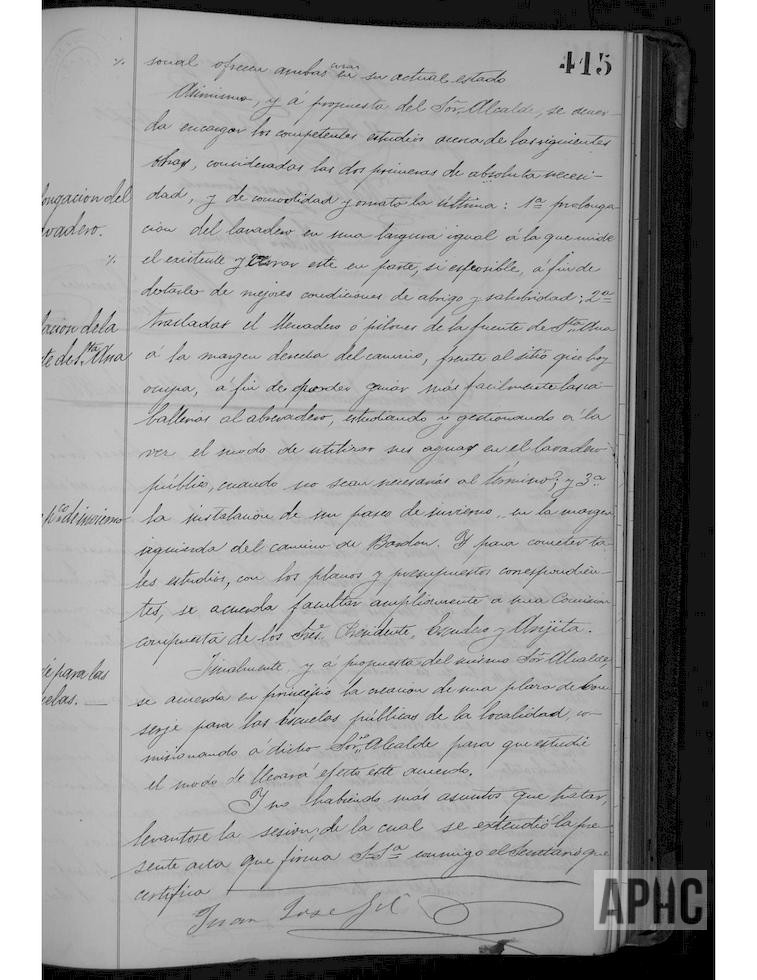 445
sonal ofrecen ambas casas en su actual estado
Asimismo, y á propuesta del Sõr. Alcalde, se acuer-
da encargar los competentes estudios acerca de las siguientes
obras, consideradas las dos primeras de absoluta necesi-
dad, y de comodidad y ornato la última: 1ª prolonga-
ción del lavadero en una largura igual á la que mide
el existente y cerrar este en parte, si es posible, á fin de
dotarlo de mejores condiciones de abrigo y salubridad; 2ª
trasladar el llenadero ó pilones de la fuente de Sta. Ana
á la margen derecha del camino, frente al sitio que hoy
ocupa, á fin de poder guiar más facilmente las ca-
ballerias al abrevadero, estudiando y gestionando á la
vez el modo de utilizar sus aguas en el lavadero
público, cuando no sean necesarias al término; y 3ª
la instalación de un paseo de invierno en la margen
izquierda del camino de Bardon. Y para cometer ta-
les estudios, con los planos y presupuestos correspondien-
tes, se acuerda facultar ampliamente á una Comisión
compuesta de los Sres. Presidente, Escudero y
Finalmente, y á propuesta del mismo Sõr. Alcalde,
se acuerda en principio la creación de una plaza de Con-
serje para las Escuelas públicas de la localidad, co-
misionando á dicho Sõr. Alcalde para que estudie
el modo de llevar á efecto este acuerdo.
Y no habiendo más asuntos que tratar,
levantose la sesión, de la cual se extendió la pre-
sente acta que firma S. Sª conmigo el Secretario que
certifica
Juan José Gil
longacion del
vadero.
lacion de la
te de Sta. Ana
pco. de invierno
je para las
uelas.
APHC